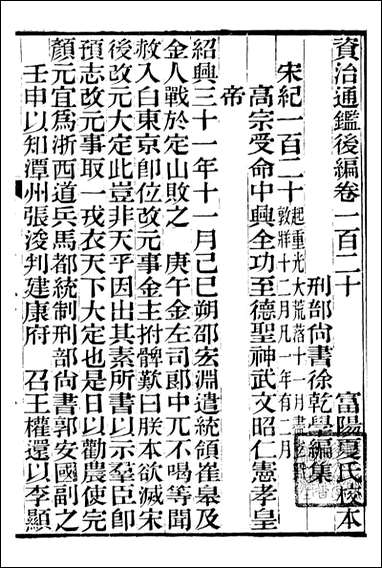 資治通鑑後編卷一百二十　富陽夏氏校本
刑部尙書徐乾學編集
宋紀一百二十 起重光大荒落十一月盡
敦牂十二月凡一年有二月
高宗受命中興全功至德聖神武文昭仁憲孝皇
帝
紹興三十一年十一月己巳朔邵宏淵遣統領崔皋及
金人戰於定山敗之　庚午金左司郞中兀不喝等聞
赦入白東京卽位改元事金主拊髀歎曰朕本欲滅宋
後改元大定此豈非天乎因出其素所書以示羣臣卽
預志改元事取一戎衣天下大定也是日以勸農使完
顏元宜爲浙西道兵馬都統制刑部尙書郭安國副之
壬申以知潭州張浚判建康府　召王權還以李顯